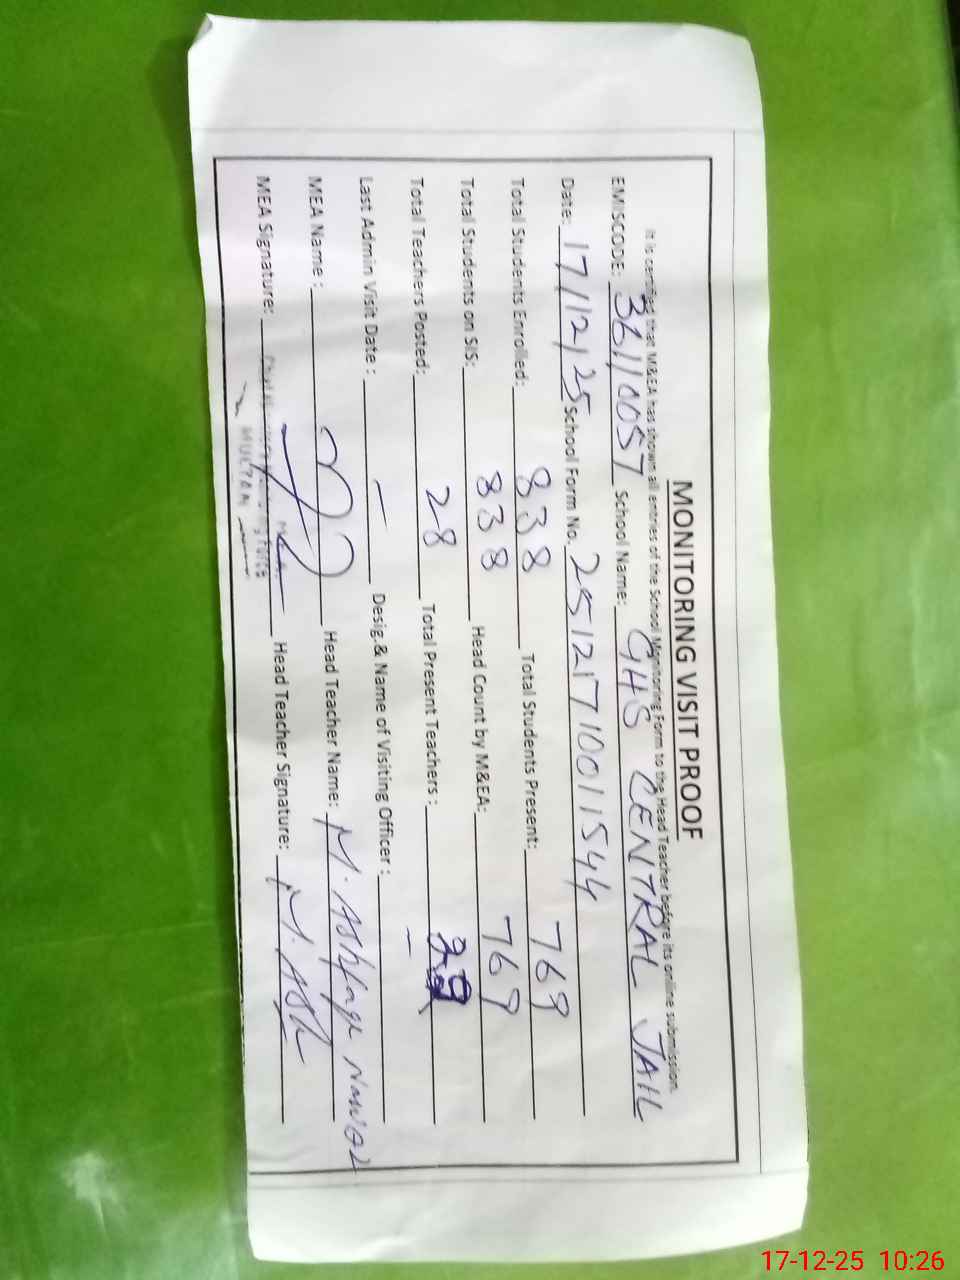 MONITORING VISIT PROOF
It is certified that M&EA has shown all entries of the School Monitoring Form to the Head Teacher before its online submission.
EMISCODE: 36110057 School Name: GHS CENTRAL JAIL
Date: 17/12/25 School Form No. 25121710011544
Total Students Enrolled: 838 Total Students Present: 769
Total Students on SIS: 838 Head Count by M&EA: 769
Total Teachers Posted: 28 Total Present Teachers :
Last Admin Visit Date : — Desig.& Name of Visiting Officer : —
MEA Name : Head Teacher Name: M. Ashfaqe Nawaz
MEA Signature: Head Teacher Signature: M. Ash
MULTAN
17-12-25 10:26